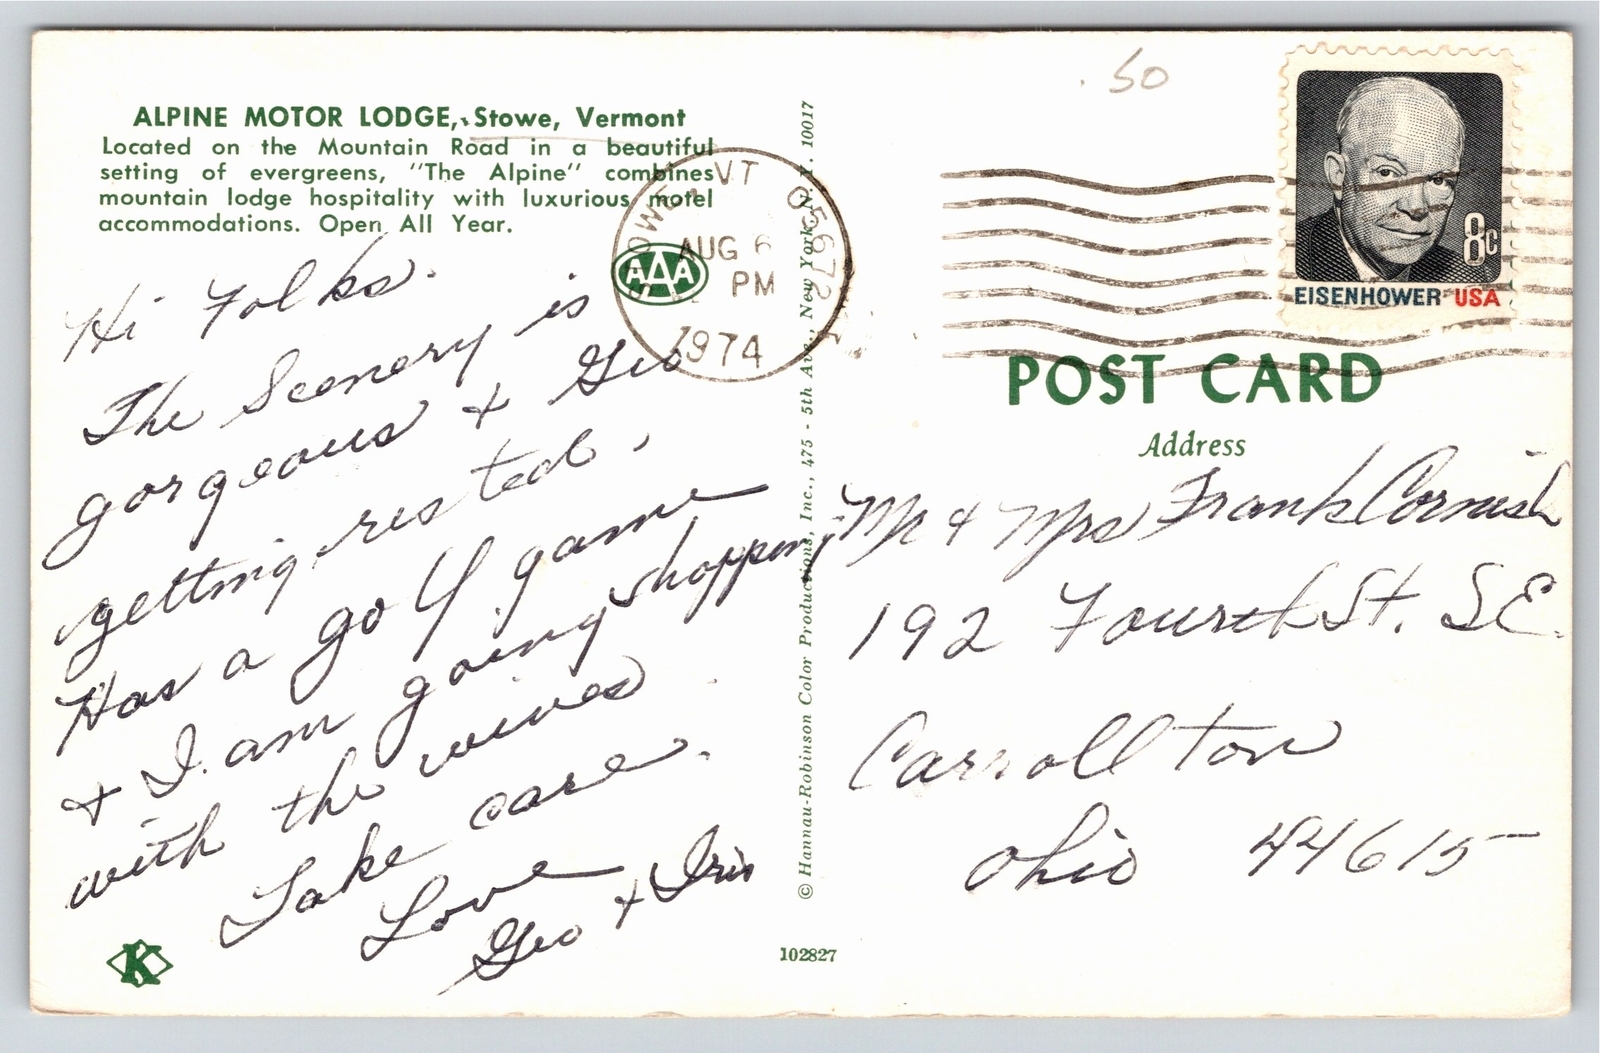 ALPINE MOTOR LODGE, Stowe, Vermont
Located on the Mountain Road in a beautiful
setting of evergreens, "The Alpine" combines
mountain lodge hospitality with luxurious motel
accommodations. Open All Year.
AAA
Hi Folks.
The Scenery is
gorgeous & Geo
getting rested.
Has a golf game
& I am going shopping
with the wives
Take care.
Love
Geo & Iris
K
STOWE, VT 05672
AUG 6
PM
1974
© Hannau-Robinson Color Productions, Inc., 475 - 5th Ave., New York, N. Y. 10017
102827
.50
8c
EISENHOWER USA
POST CARD
Address
Mr & Mrs Frank Cornish
192 Fourth St. SE.
Carrollton
Ohio 44615